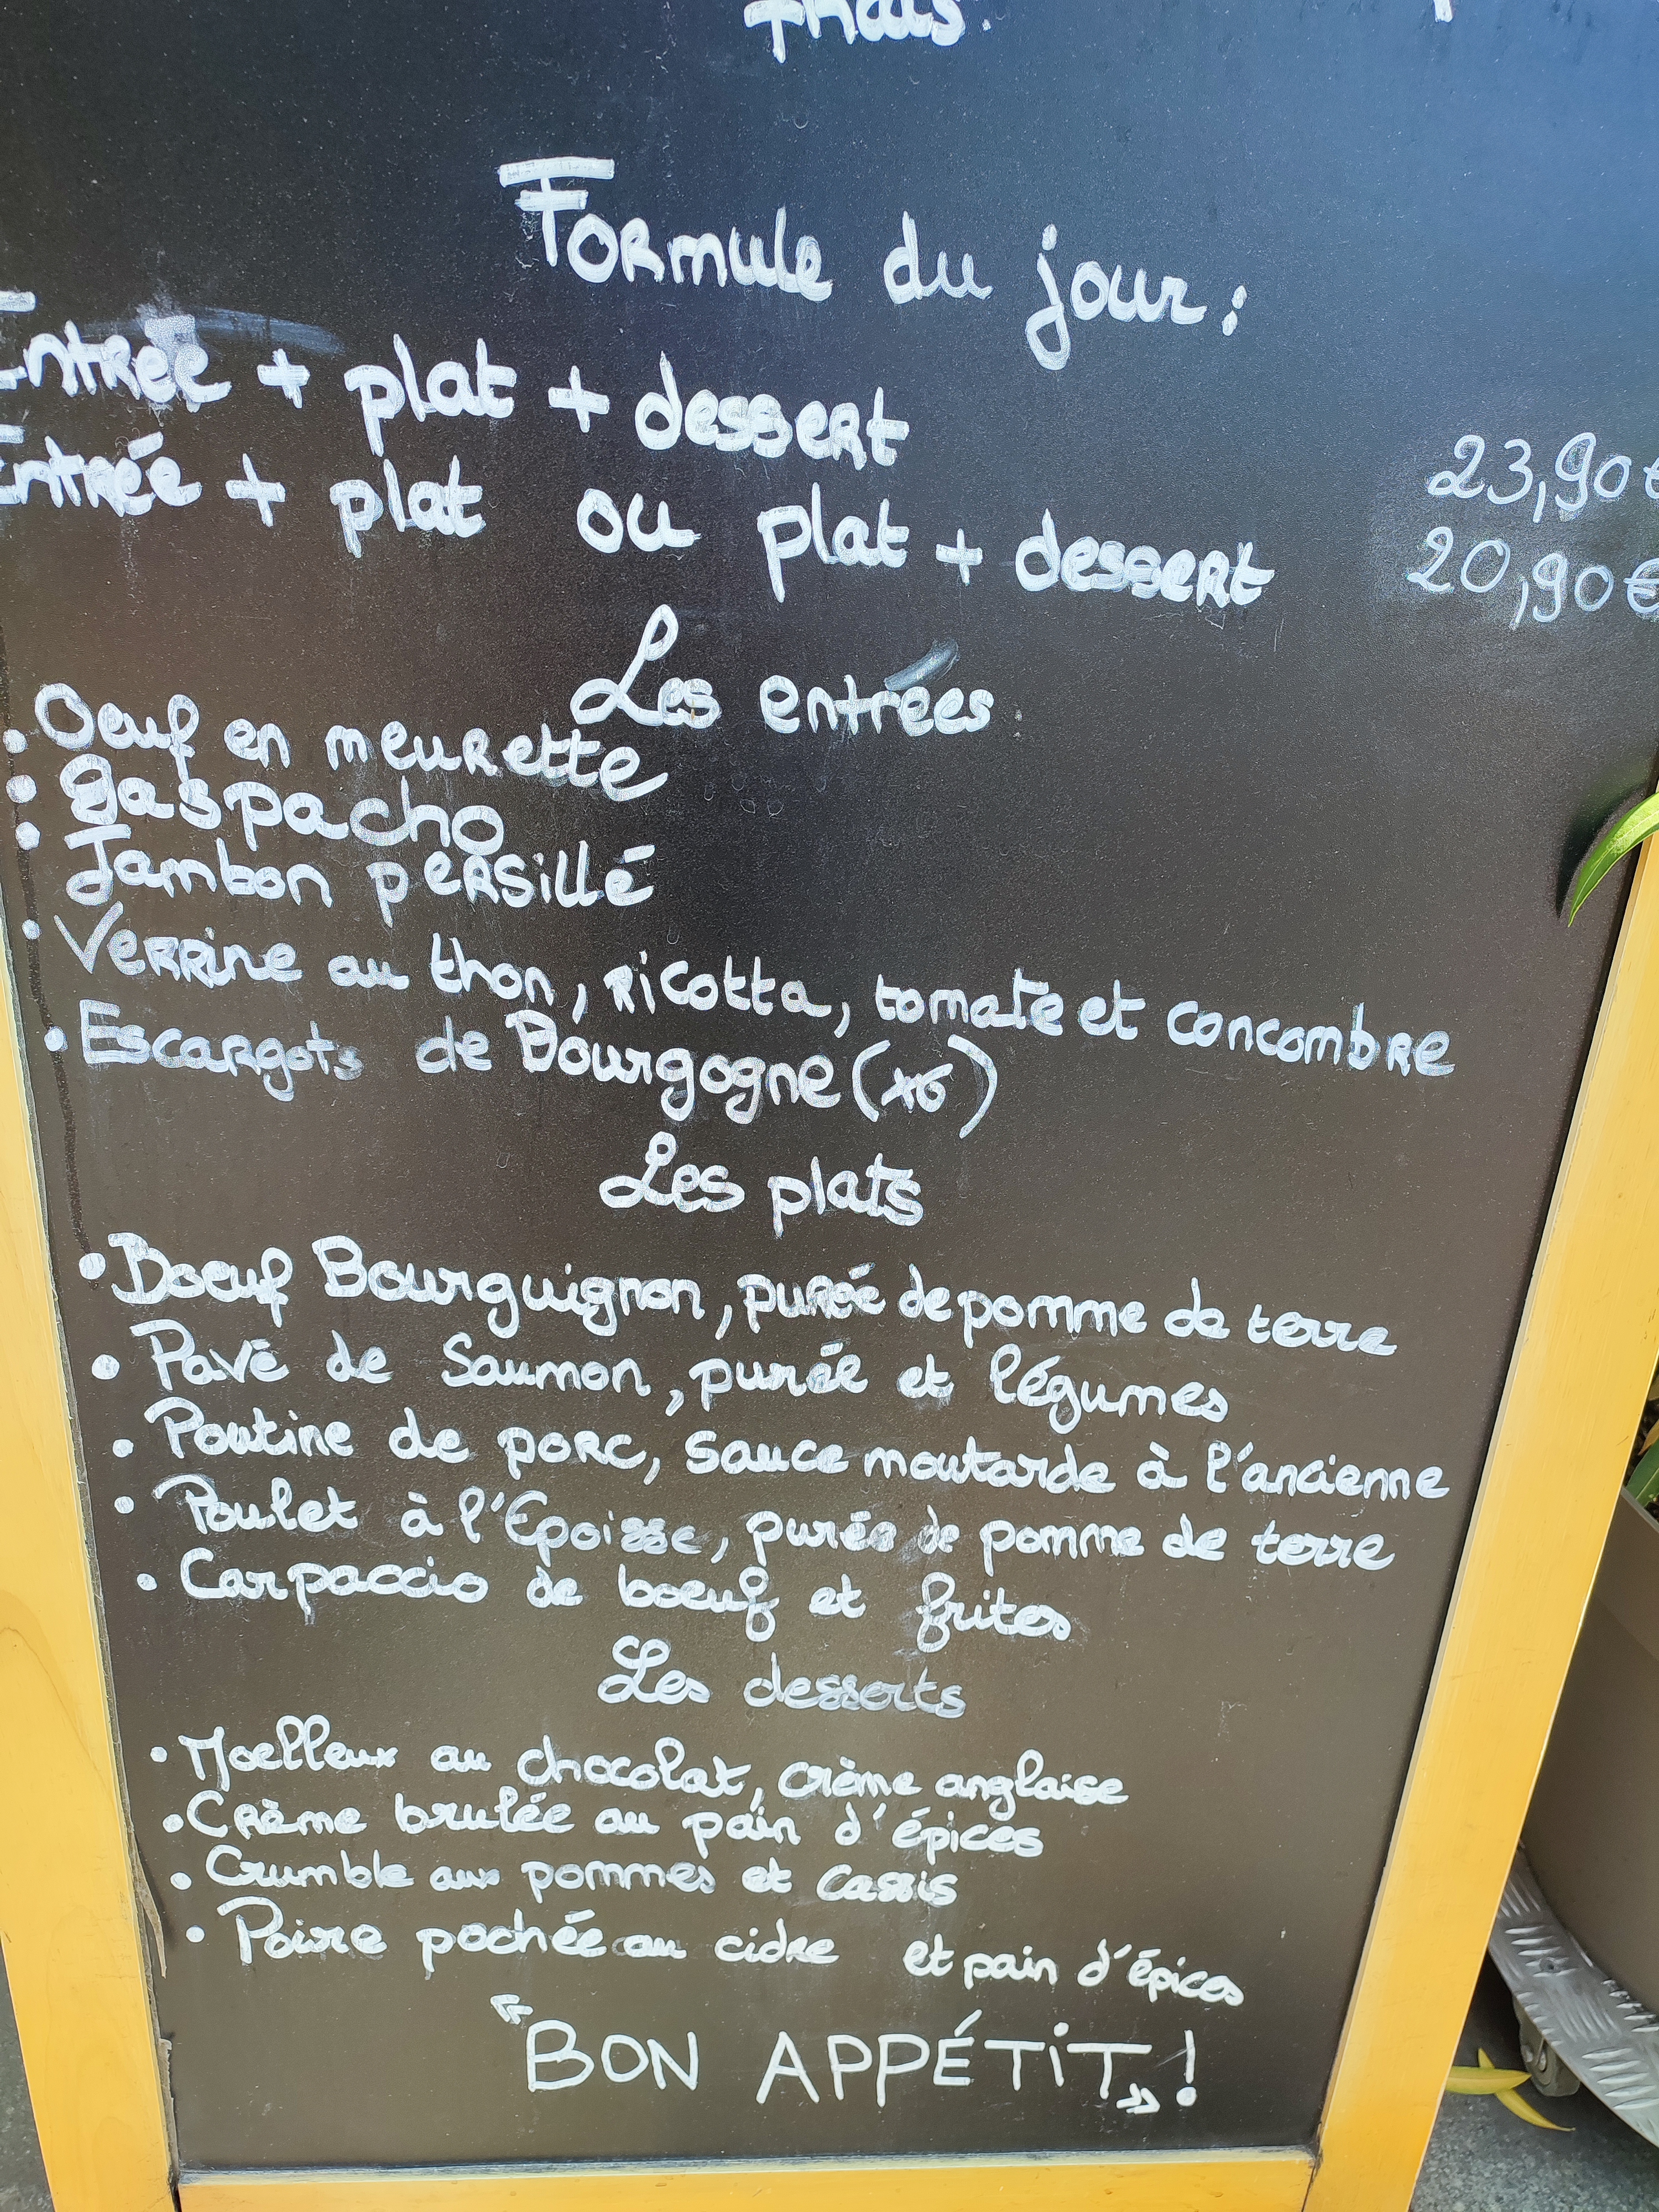 frais.
Formule du jour :
Entrée + plat + dessert 23,90€
Entrée + plat ou plat + dessert 20,90€
Les entrées
• Oeuf en meurette
• gaspacho
• Jambon persillé
• Verrine au thon, ricotta, tomate et concombre
• Escargots de Bourgogne (x6)
Les plats
• Boeuf Bourguignon, purée de pomme de terre
• Pavé de Saumon, purée et légumes
• Poutine de porc, sauce moutarde à l'ancienne
• Poulet à l'Epoisse, purée de pomme de terre
• Carpaccio de boeuf et frites
Les desserts
• Moelleux au chocolat, crème anglaise
• Crème brulée au pain d'épices
• Crumble aux pommes et cassis
• Poire pochée au cidre et pain d'épices
"BON APPÉTIT" !